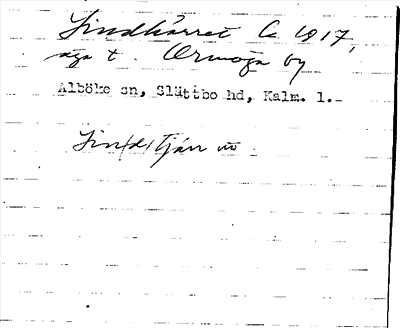 Lindkärret Ca 1917,
äga t. Ormöga by
Alböke sn, Slättbo hd, Kalm. l.-
Lin(d)tjärn